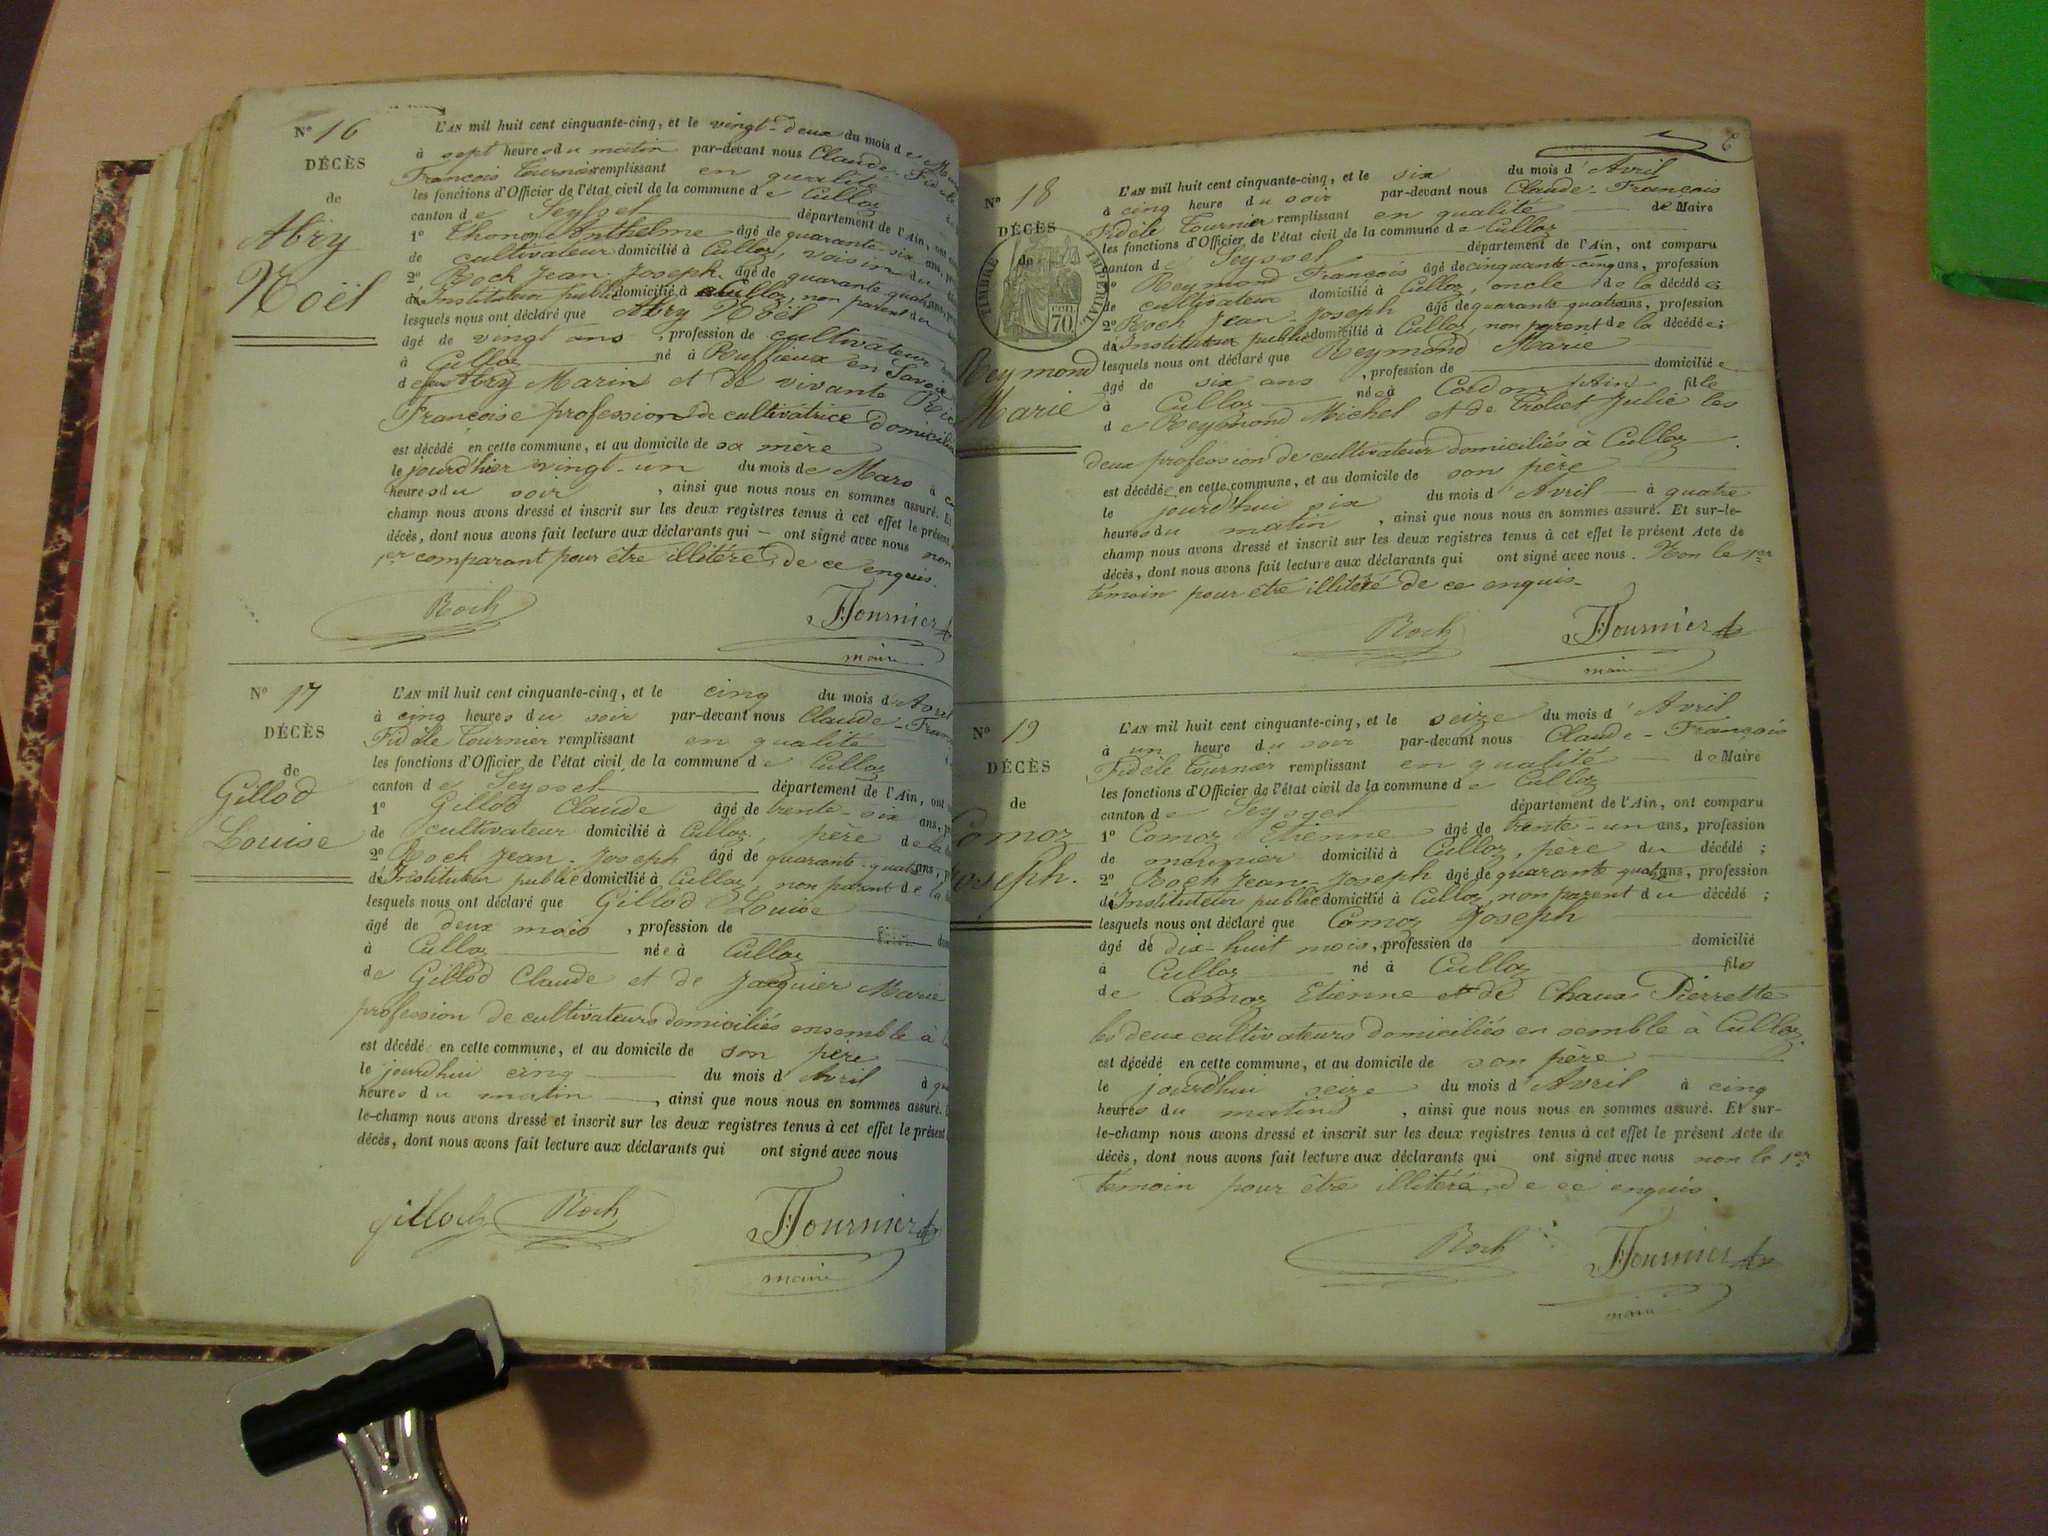 N° 16
DÉCÈS
de
Abry
Noël
L'AN mil huit cent cinquante-cinq, et le vingt-deux du mois de
à sept heures du matin par-devant nous Claude-
François Tournier remplissant en qualité
les fonctions d'Officier de l'état civil de la commune de Culloz
canton de Seyssel département de l'Ain, ont
1° Anthelme âgé de quarante-six ans,
de cultivateur domicilié à Culloz, voisin du
2° Roch Jean-Joseph âgé de quarante quatre ans,
de Instituteur public domicilié à Culloz, non parent du
lesquels nous ont déclaré que Abry Noël
âgé de vingt ans, profession de cultivateur
à Culloz né à Ruffieux en Savoie
de feu Abry Marin et de vivante
Françoise profession de cultivatrice domiciliée
est décédé en cette commune, et au domicile de sa mère
le jourd'hier vingt-un du mois de Mars à
heures du soir, ainsi que nous nous en sommes assuré. Et
champ nous avons dressé et inscrit sur les deux registres tenus à cet effet le présent
décès, dont nous avons fait lecture aux déclarants qui — ont signé avec nous non
1er comparant pour être illitéré de ce enquis.
Roch
FTournier
maire
N° 17
DÉCÈS
de
Gillod
Louise
L'AN mil huit cent cinquante-cinq, et le cinq du mois d'Avril
à cinq heures du soir par-devant nous Claude-
Fidèle Tournier remplissant en qualité
les fonctions d'Officier de l'état civil de la commune de Culloz
canton de Seyssel département de l'Ain, ont
1° Gillod Claude âgé de trente-six ans,
de cultivateur domicilié à Culloz, père de la
2° Roch Jean-Joseph âgé de quarante-quatre ans,
de Instituteur public domicilié à Culloz, non parent de la
lesquels nous ont déclaré que Gillod Louise
âgé de deux mois, profession de
à Culloz née à Culloz
de Gillod Claude et de Jacquier Marie
profession de cultivateurs domiciliés ensemble à
est décédé en cette commune, et au domicile de son père
le jourd'hui cinq du mois d'Avril à
heures du matin, ainsi que nous nous en sommes assuré.
le-champ nous avons dressé et inscrit sur les deux registres tenus à cet effet le présent
décès, dont nous avons fait lecture aux déclarants qui ont signé avec nous
gillods
Roch
FTournier
maire
6
N° 18
DÉCÈS
de
TIMBRE IMPÉRIAL
CEN. 70
Reymond
Marie
L'AN mil huit cent cinquante-cinq, et le six du mois d'Avril
à cinq heure du soir par-devant nous Claude-François
Fidèle Tournier remplissant en qualité de Maire
les fonctions d'Officier de l'état civil de la commune de Culloz
canton de Seyssel département de l'Ain, ont comparu
1° Reymond François âgé de cinquante-cinq ans, profession
de cultivateur domicilié à Culloz, oncle de la décédée;
2° Roch Jean-Joseph âgé de quarante quatre ans, profession
de Instituteur public domicilié à Culloz, non parent de la décédée;
lesquels nous ont déclaré que Reymond Marie
âgé de six ans, profession de domiciliée
à Culloz née à Cordon (Ain) fille
de Reymond Michel et de Troliet Julie les
deux profession de cultivateur domiciliés à Culloz.
est décédée en cette commune, et au domicile de son père
le jourd'hui six du mois d'Avril — à quatre
heures du matin, ainsi que nous nous en sommes assuré. Et sur-le-
champ nous avons dressé et inscrit sur les deux registres tenus à cet effet le présent Acte de
décès, dont nous avons fait lecture aux déclarants qui ont signé avec nous. Non le 1er
témoin pour être illitéré de ce enquis.
Roch
FTournier
maire
N° 19
DÉCÈS
de
Comoz
Joseph.
L'AN mil huit cent cinquante-cinq, et le seize du mois d'Avril
à un heure du soir par-devant nous Claude-François
Fidèle Tournier remplissant en qualité de Maire
les fonctions d'Officier de l'état civil de la commune de Culloz
canton de Seyssel département de l'Ain, ont comparu
1° Comoz Etienne âgé de trente-un ans, profession
de meunier domicilié à Culloz, père du décédé;
2° Roch Jean-Joseph âgé de quarante quatre ans, profession
de Instituteur public domicilié à Culloz, non parent du décédé;
lesquels nous ont déclaré que Comoz Joseph
âgé de dix-huit mois, profession de domicilié
à Culloz né à Culloz fils
de Comoz Etienne et de Chaux Pierrette
les deux cultivateurs domiciliés ensemble à Culloz.
est décédé en cette commune, et au domicile de son père
le jourd'hui seize du mois d'Avril à cinq
heures du matin, ainsi que nous nous en sommes assuré. Et sur-
le-champ nous avons dressé et inscrit sur les deux registres tenus à cet effet le présent Acte de
décès, dont nous avons fait lecture aux déclarants qui ont signé avec nous non le 1er
témoin pour être illitéré, de ce enquis.
Roch
FTournier
maire